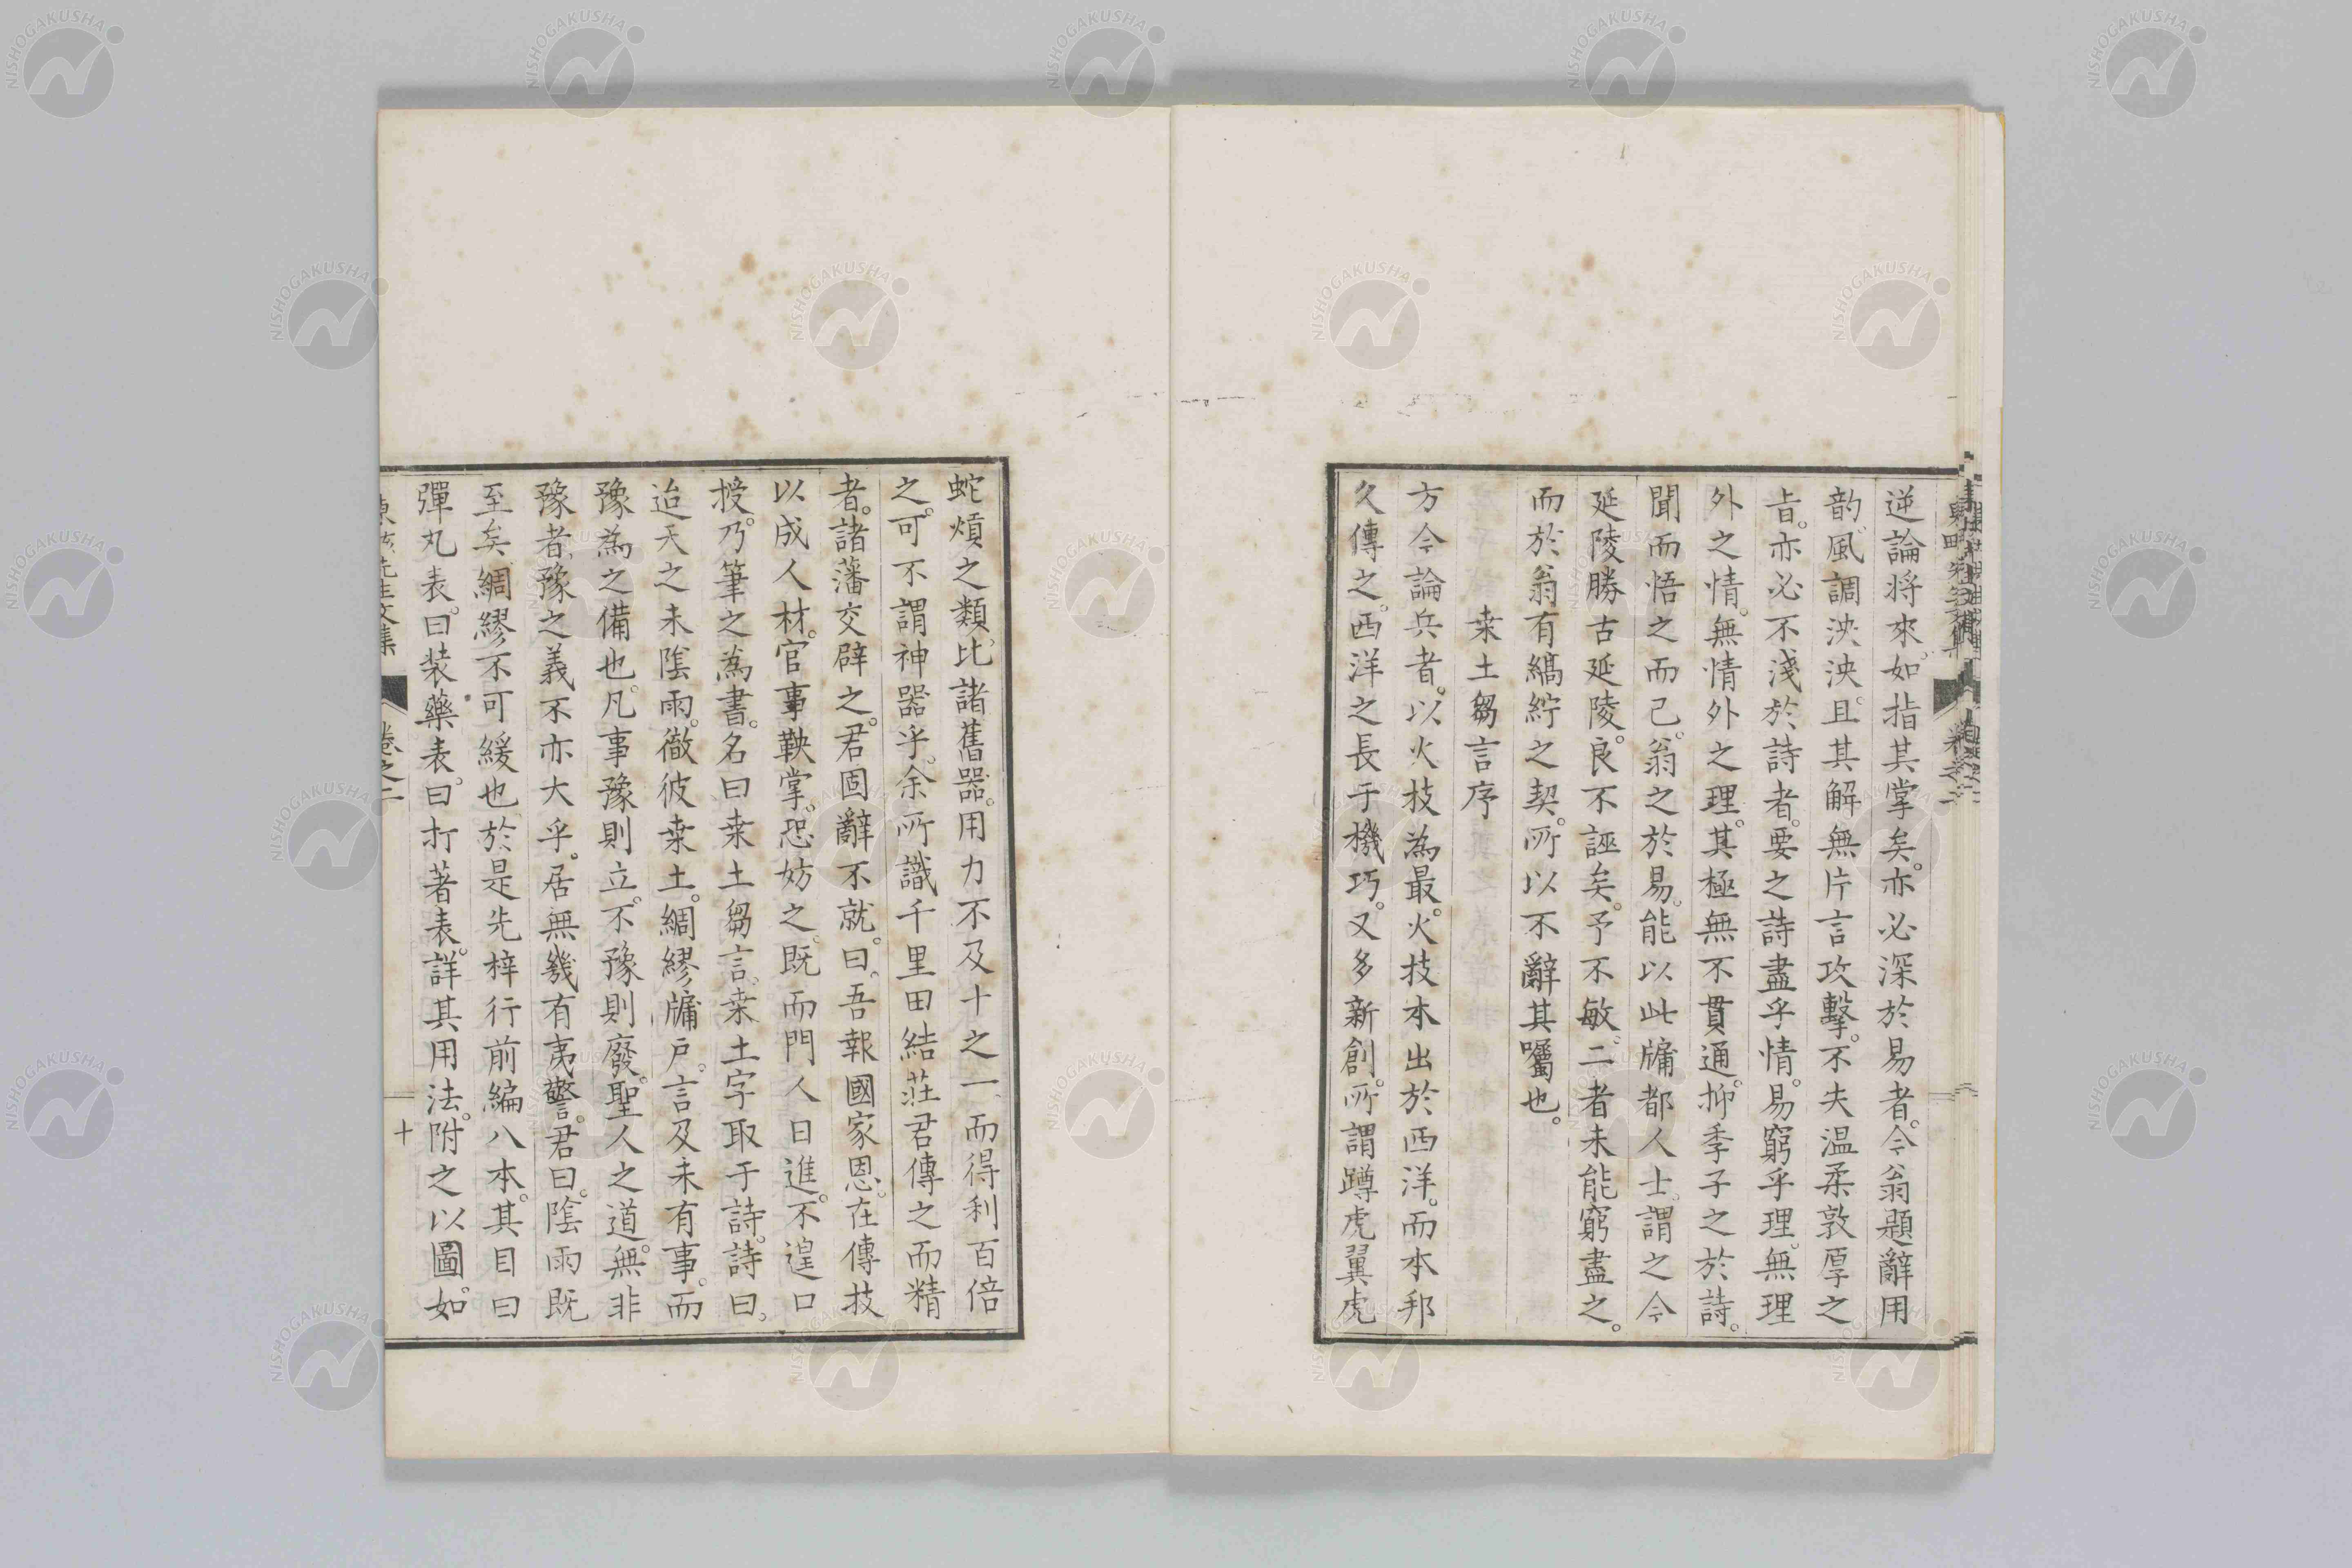 逆論將來。如指其掌矣。亦必深於易者。今翁題辭用
韵。風調泱泱。且其解無片言攻擊。不失温柔敦厚之
旨。亦必不淺於詩者。要之詩盡乎情。易窮乎理。無理
外之情。無情外之理。其極無不貫通。抑季子之於詩。
聞而悟之而已。翁之於易。能以此牖都人士。謂之今
延陵勝古延陵。良不誣矣。予不敏。二者未能窮盡之。
而於翁有縞紵之契。所以不辭其囑也。
桒土芻言序
方今論兵者。以火技為最。火技本出於西洋。而本邦
久傳之。西洋之長于機巧。又多新創。所謂蹲虎翼虎
蛇熕之類。比諸舊器。用力不及十之一。而得利百倍
之。可不謂神器乎。余所識千里田結莊君傳之而精
者。諸藩交辟之。君固辭不就。曰。吾報國家恩。在傳技
以成人材。官事鞅掌。恐妨之。既而門人日進。不遑口
授。乃筆之為書。名曰桒土芻言。桒土字取于詩。詩曰。
迨天之未陰雨。徹彼桒土。綢繆牖戶。言及未有事。而
豫為之備也。凡事豫則立。不豫則廢。聖人之道。無非
豫者。豫之義不亦大乎。居無幾有夷警。君曰。陰雨既
至矣。綢繆不可緩也。於是先梓行前編八本。其目曰
彈丸表。曰装藥表。曰打著表。詳其用法。附之以圖。如
先生文集
卷之二
十
NISHOGAKUSHA